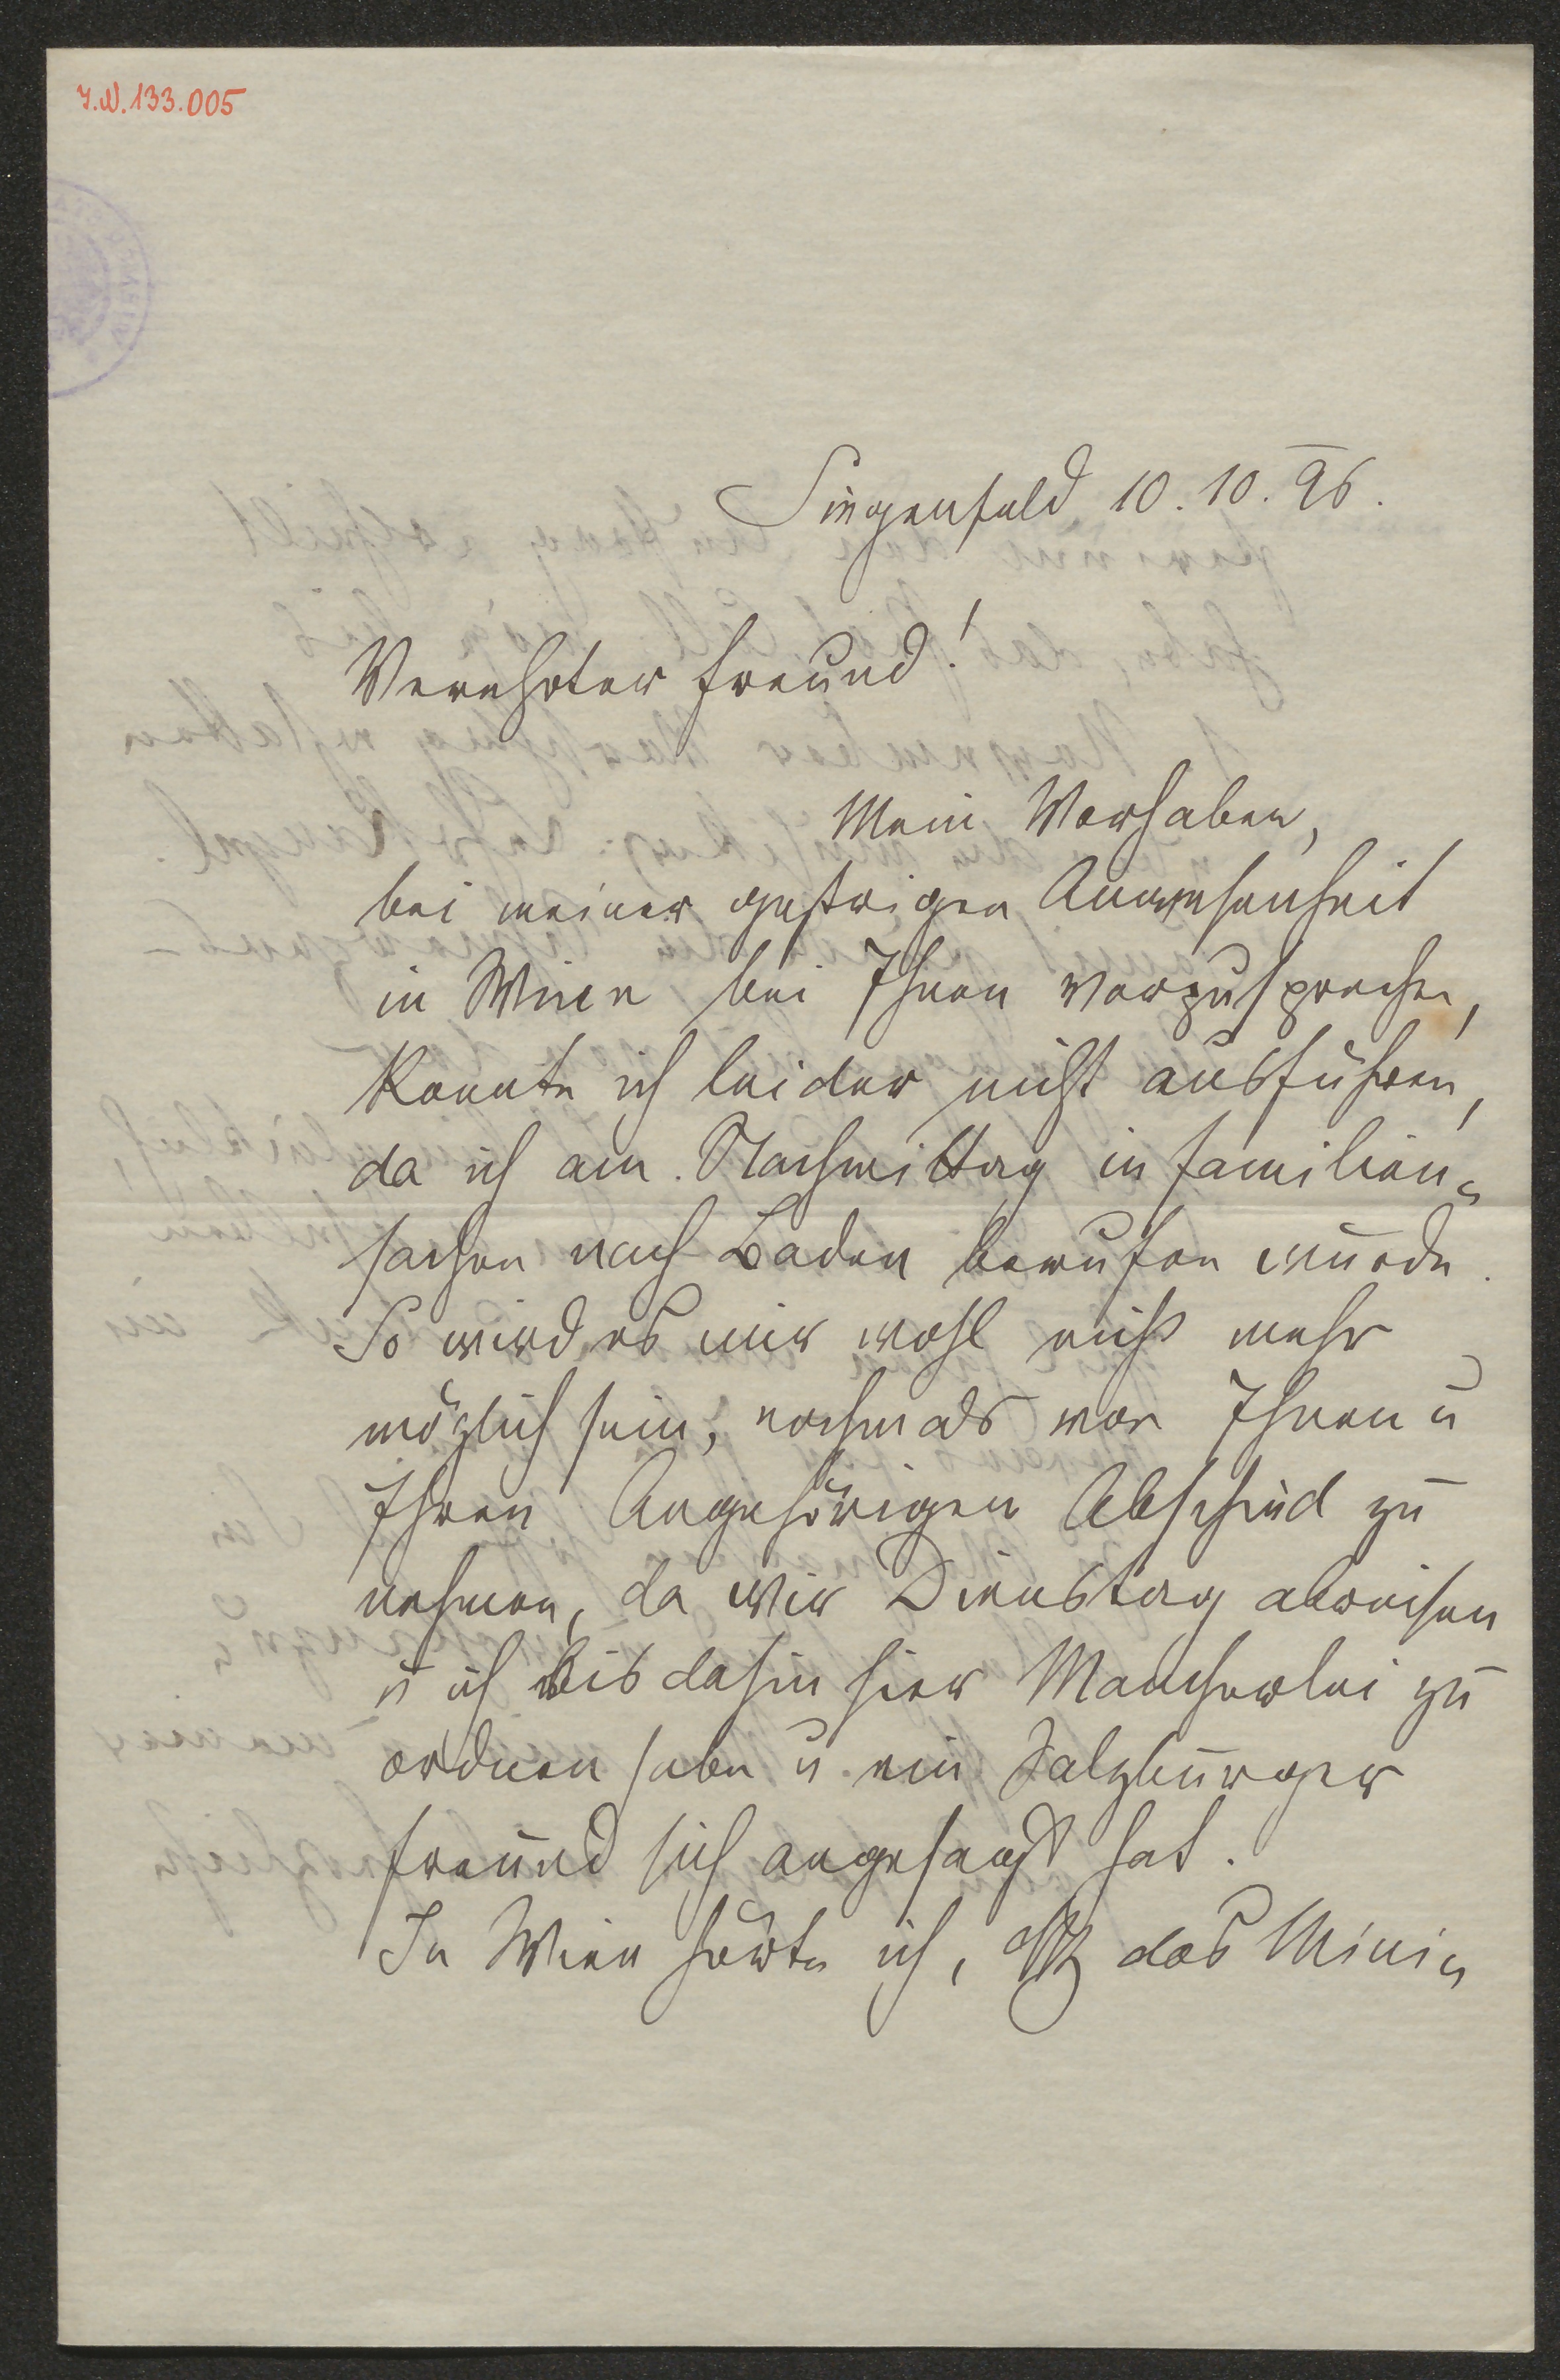 I.N. 133.005
Siegenfeld 10. 10. 96.
Verehrter Freund!
Mein Vorhaben,
bei meiner gestrigen Anwesenheit
in Wien bei Ihnen vorzusprechen,
konnte ich leider nicht ausführen,
da ich am Nachmittag in Familien=
sachen nach Baden berufen wurde.
So wird es mir wohl nicht mehr
möglich sein, nochmals von Ihnen u
Ihren Angehörigen Abschied zu
nehmen, da wir Dienstag abreisen
u ich bis dahin hier Mancherlei zu
ordnen habe u. ein Salzburger
Freund sich angesagt hat.
In Wien hörte ich, daß das Mini=